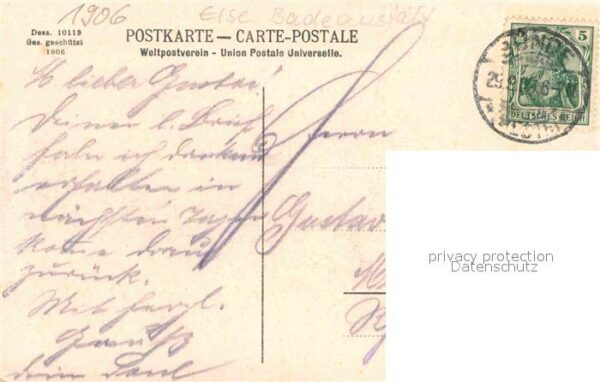 1906 Else Badeanstalt
Dess. 10119
Ges. geschützt
1906
POSTKARTE — CARTE-POSTALE
Weltpostverein - Union Postale Universelle.
5
BÜNDE
DEUTSCHES REICH
M. lieber Gustav!
Deinen l. Brief
habe ich dankend
erhalten in
nächsten Tagen
komme drauf
zurück.
Mit herzl.
Gruß
dein Paul
Herrn
Gustav
privacy protection
Datenschutz